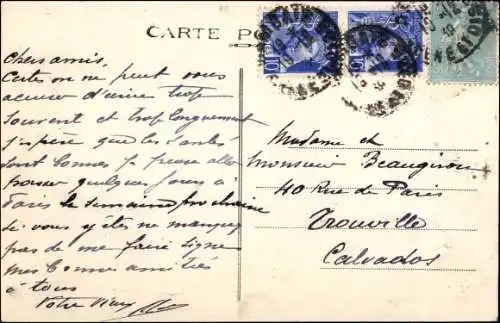 CARTE PO
Chers amis,
Certes on ne peut vous
accuser d'écrire trop
souvent et trop longuement
J'espère que les santés
sont bonnes. Je pense aller
passer quelques jours à
Paris la semaine prochaine
si vous y êtes ne manquez
pas de me faire signe
mes bonnes amitiés
à tous
Votre vieux
Madame et
Monsieur Beaugiron
40 Rue de Paris
Trouville
Calvados